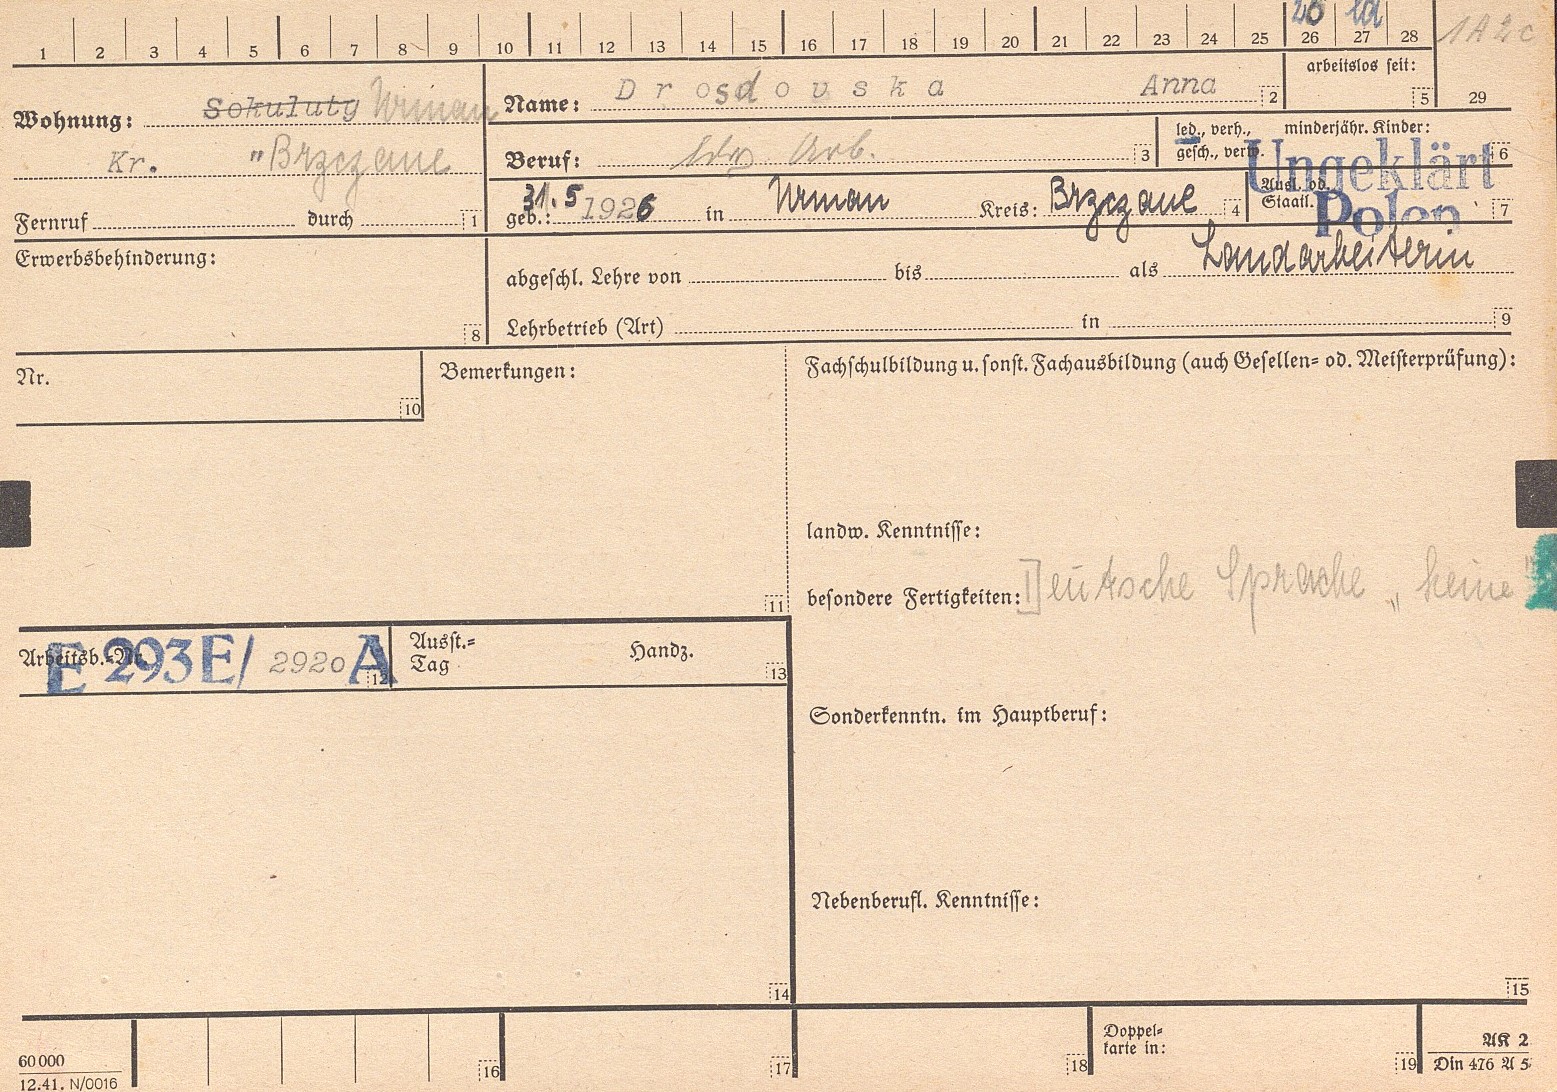 1 2 3 4 5 6 7 8 9 10 11 12 13 14 15 16 17 18 19 20 21 22 23 24 25 26 27 28 29
26 1A2c
arbeitslos seit: 5
Wohnung: Sokuluty Urman
Kr. "Brzezane
Fernruf durch 1
Name: Drosdouska Anna 2
Beruf: ldw. Arb. 3
led., verh., gesch., verw. minderjähr. Kinder: 6
geb.: 31.5 1926 in Urman Kreis: Brzezane 4
Ausl. od. Staatl. 7
Ungeklärt
Polen
Erwerbsbehinderung: 8
abgeschl. Lehre von bis als Landarbeiterin
Lehrbetrieb (Art) in 9
Nr. 10
Bemerkungen: 11
Fachschulbildung u. sonst. Fachausbildung (auch Gesellen= od. Meisterprüfung):
landw. Kenntnisse:
besondere Fertigkeiten: Deutsche Sprache „keine"
Arbeitsb.=Nr. E 293E/ 2920 A 12
Ausst.=Tag Handz. 13
Sonderkenntn. im Hauptberuf:
Nebenberufl. Kenntnisse:
14 15
60 000
12.41. N/0016
16 17 18
Doppel=
karte in: 19
AK 2
Din 476 A 5